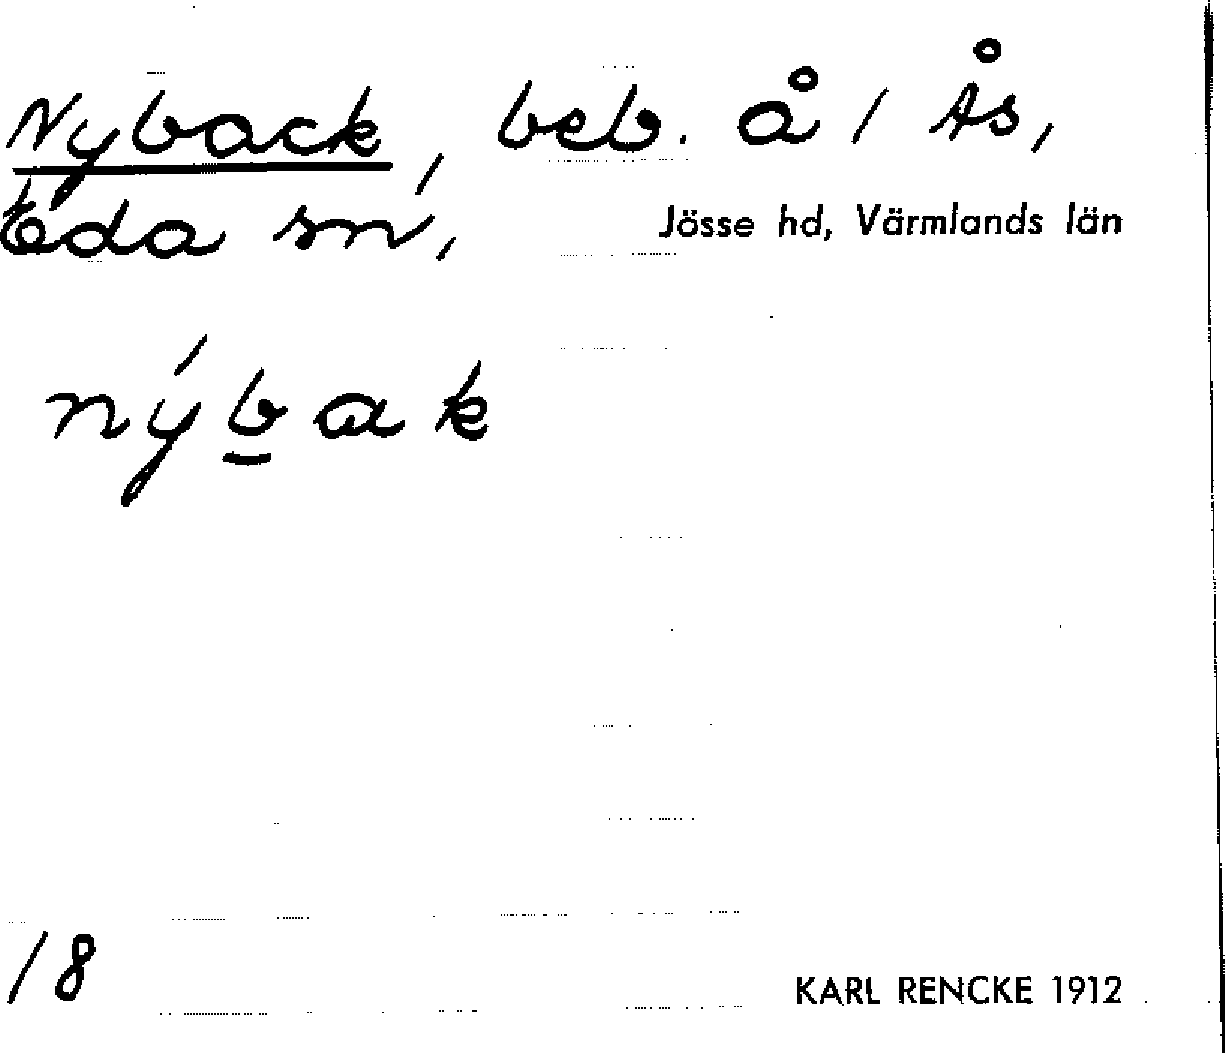 Nyback, beb. å 1 Ås,
Eda sn, Jösse hd, Värmlands län
nýbak
18
KARL RENCKE 1912